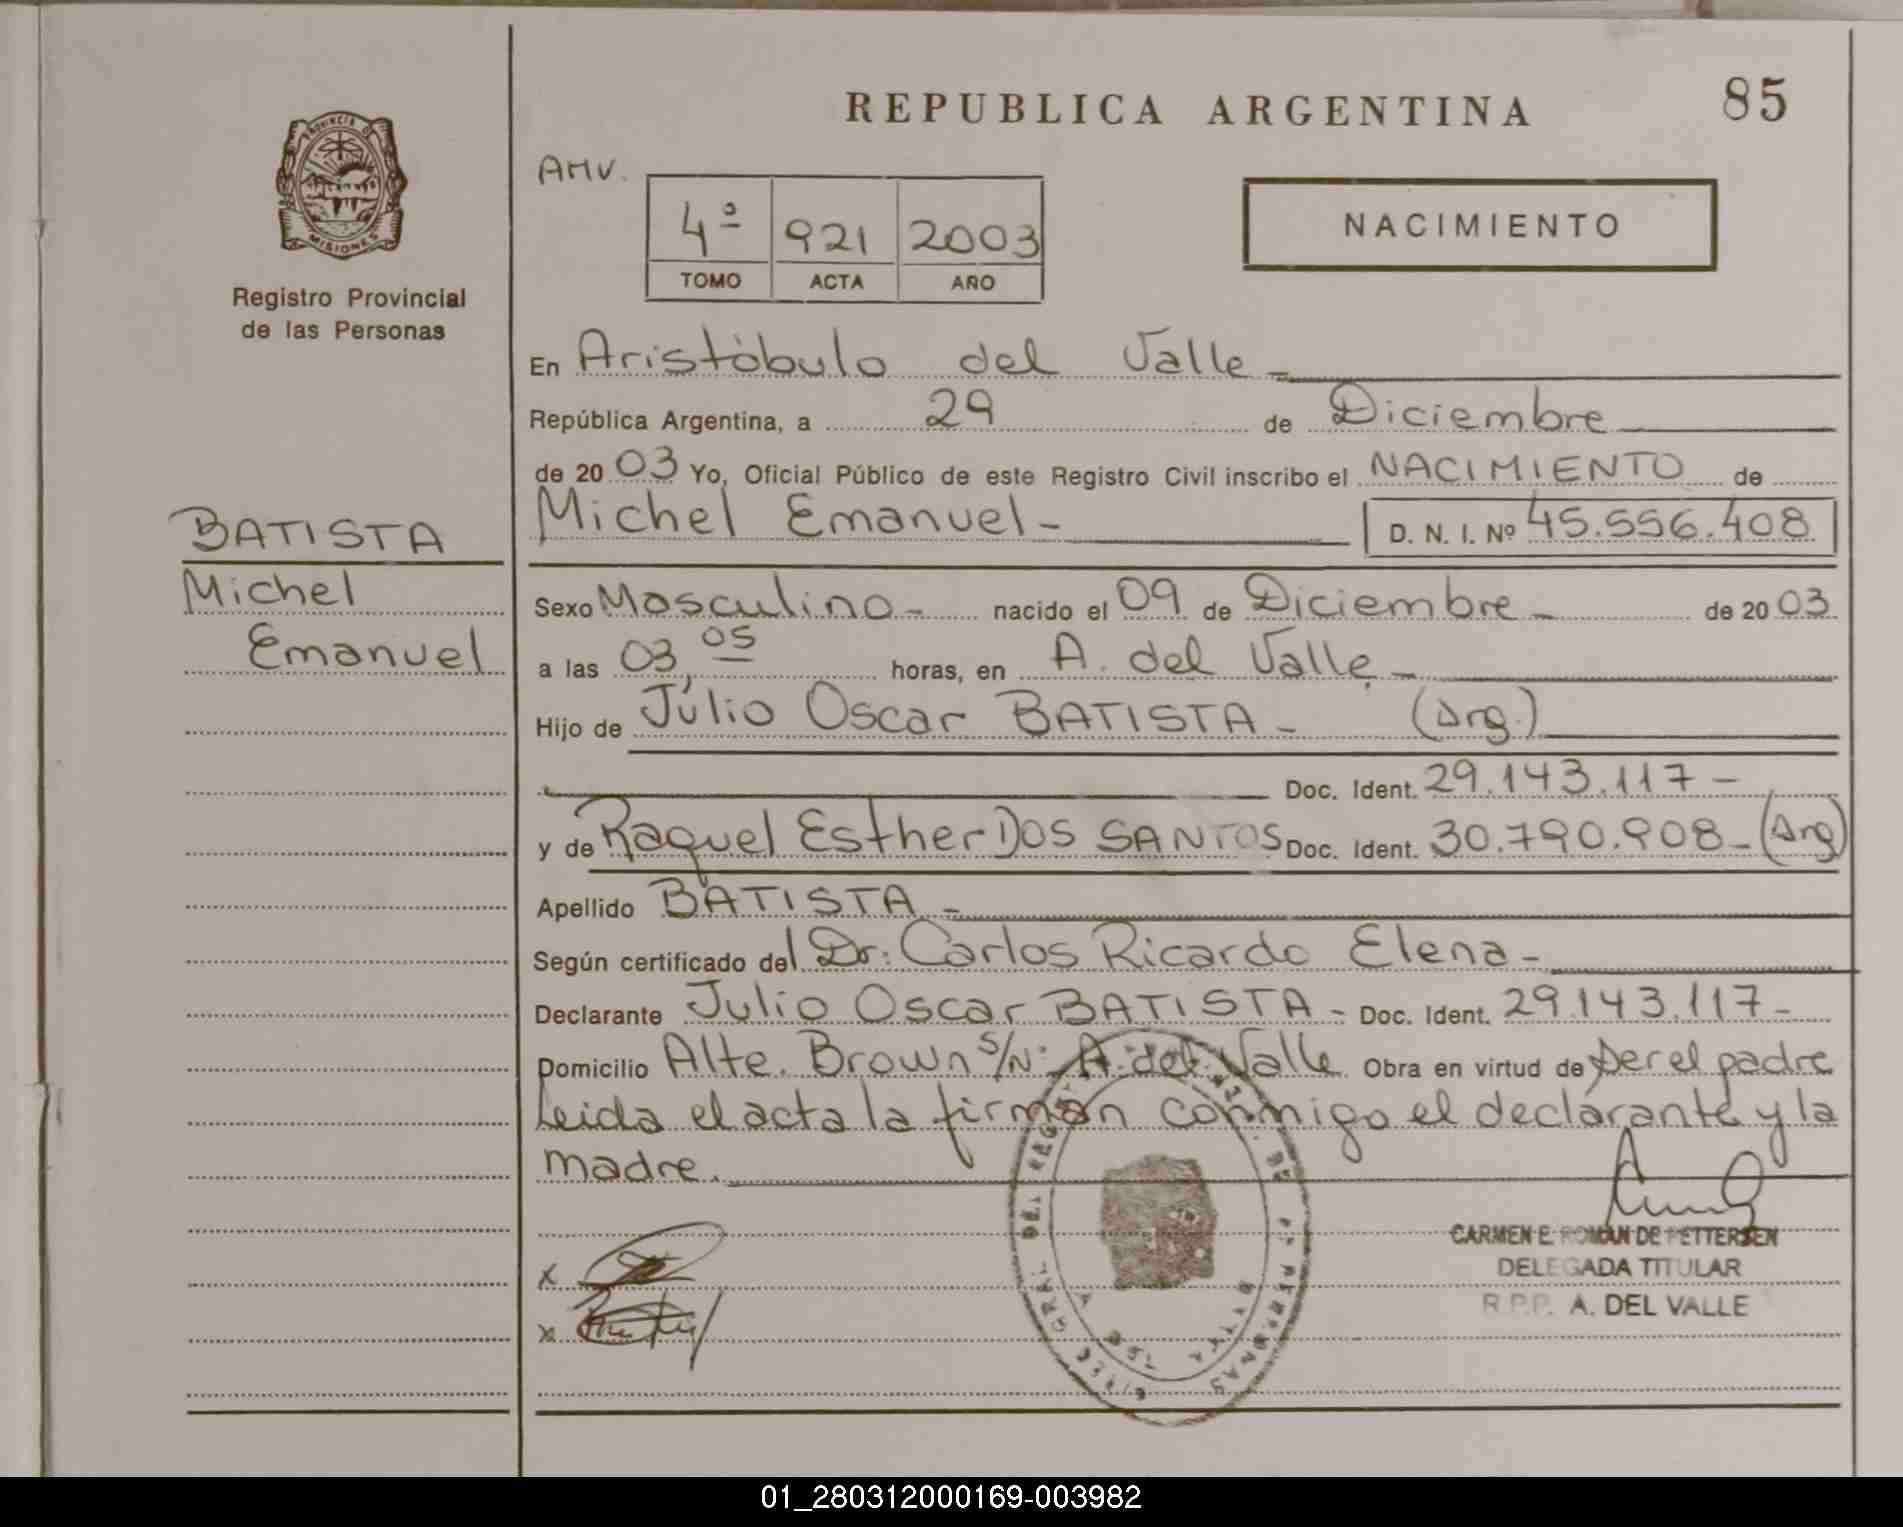 REPUBLICA ARGENTINA
85
PROVINCIA DE
MISIONES
Registro Provincial
de las Personas
AMV.
4º 921 2003
TOMO ACTA AÑO
NACIMIENTO
En Aristóbulo del Valle
República Argentina, a 29 de Diciembre
de 20 03 Yo, Oficial Público de este Registro Civil inscribo el NACIMIENTO de
Michel Emanuel- D. N. I. Nº 45.556.408
BATISTA
Michel
Emanuel
Sexo Masculino- nacido el 09 de Diciembre- de 20 03
a las 03,05 horas, en A. del Valle-
Hijo de Júlio Oscar BATISTA- (Arg.)
Doc. Ident. 29.143.117-
y de Raquel Esther DOS SANTOS Doc. Ident. 30.790.908-(Arg)
Apellido BATISTA-
Según certificado del Dr: Carlos Ricardo Elena-
Declarante Julio Oscar BATISTA- Doc. Ident. 29.143.117-
Domicilio Alte. Brown S/Nº A. del Valle Obra en virtud de ser el padre
Leida el acta la firman conmigo el declarante y la
madre.
CARMEN E. ROMAN DE PETTERSEN
DELEGADA TITULAR
R.P.P. A. DEL VALLE
x
x
01_280312000169-003982